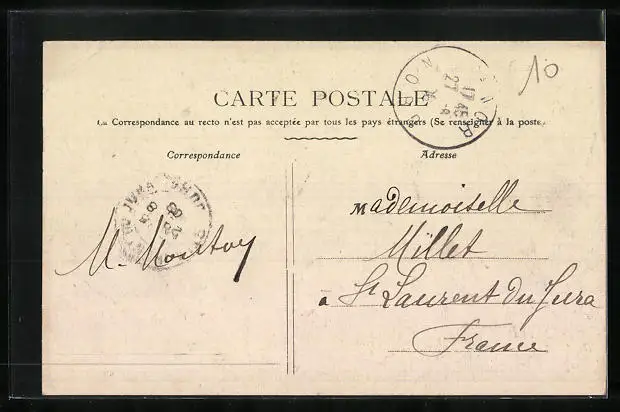 10
CARTE POSTALE
La Correspondance au recto n'est pas acceptée par tous les pays étrangers (Se renseigner à la poste)
Correspondance
Adresse
Mademoiselle
Millet
à St Laurent du Jura
France
M. Montoy
JURA